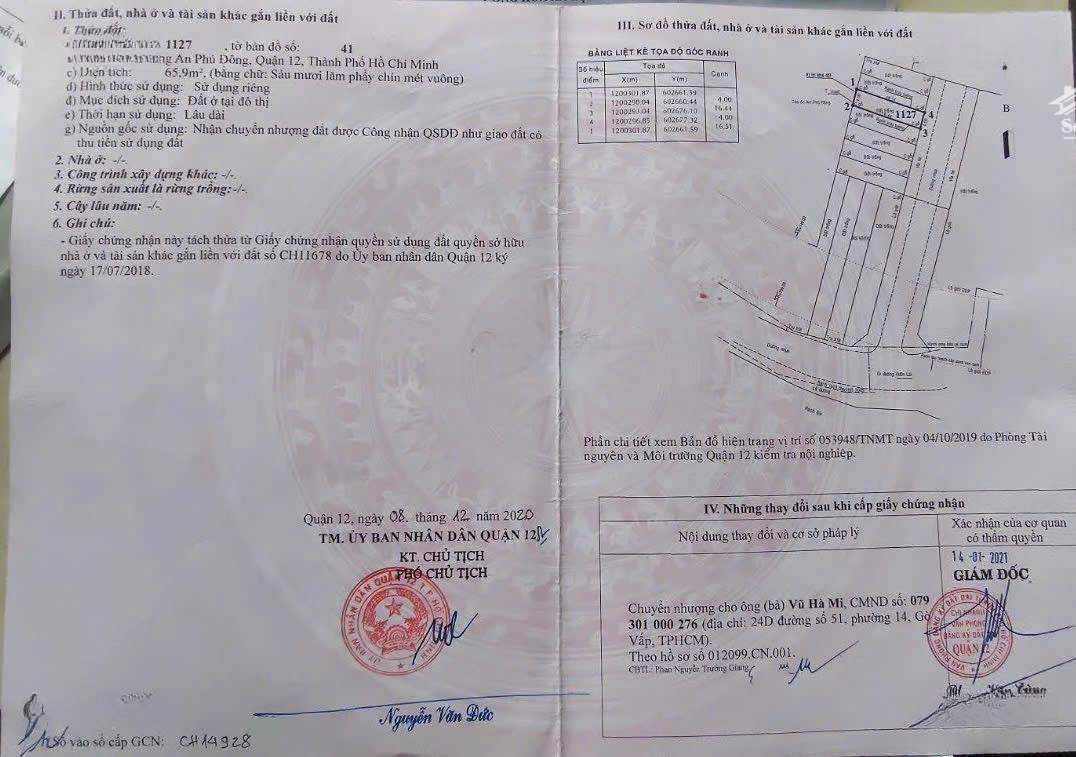 II. Thửa đất, nhà ở và tài sản khác gắn liền với đất
1. Thửa đất:
1127 , tờ bản đồ số: 41
An Phú Đông, Quận 12, Thành Phố Hồ Chí Minh
c) Diện tích: 65,9m², (bằng chữ: Sáu mươi lăm phẩy chín mét vuông)
d) Hình thức sử dụng: Sử dụng riêng
đ) Mục đích sử dụng: Đất ở tại đô thị
e) Thời hạn sử dụng: Lâu dài
g) Nguồn gốc sử dụng: Nhận chuyển nhượng đất được Công nhận QSDĐ như giao đất có
thu tiền sử dụng đất
2. Nhà ở: -/-.
3. Công trình xây dựng khác: -/-.
4. Rừng sản xuất là rừng trồng:-/-.
5. Cây lâu năm: -/-.
6. Ghi chú:
- Giấy chứng nhận này tách thửa từ Giấy chứng nhận quyền sử dụng đất quyền sở hữu
nhà ở và tài sản khác gắn liền với đất số CH11678 do Ủy ban nhân dân Quận 12 ký
ngày 17/07/2018.
Quận 12, ngày 08 tháng 12 năm 2020
TM. ỦY BAN NHÂN DÂN QUẬN 12
KT. CHỦ TỊCH
PHÓ CHỦ TỊCH
Nguyễn Văn Đức
số vào sổ cấp GCN: CH14928
III. Sơ đồ thửa đất, nhà ở và tài sản khác gắn liền với đất
BẢNG LIỆT KÊ TỌA ĐỘ GÓC RANH
Số hiệu điểm Tọa độ Cạnh
X(m) Y(m)
1 1200301.87 602661.59
4.00
2 602660.44
16.44
3 602676.10
4.00
4 602677.32
16.51
1 1200301.87 602661.59
1
2
3
4
1127
B
Phần chi tiết xem Bản đồ hiện trạng vị trí số 053948/TNMT ngày 04/10/2019 do Phòng Tài
nguyên và Môi trường Quận 12 kiểm tra nội nghiệp.
IV. Những thay đổi sau khi cấp giấy chứng nhận
Nội dung thay đổi và cơ sở pháp lý
Xác nhận của cơ quan
có thẩm quyền
14 -01- 2021
GIÁM ĐỐC
Chuyển nhượng cho ông (bà) Vũ Hà Mi, CMND số: 079
301 000 276 (địa chỉ: 24D đường số 51, phường 14, Gò
Vấp, TPHCM).
Theo hồ sơ số 012099.CN.001.
CBTL: Phan Nguyễn Trường Giang
QUẬN 12